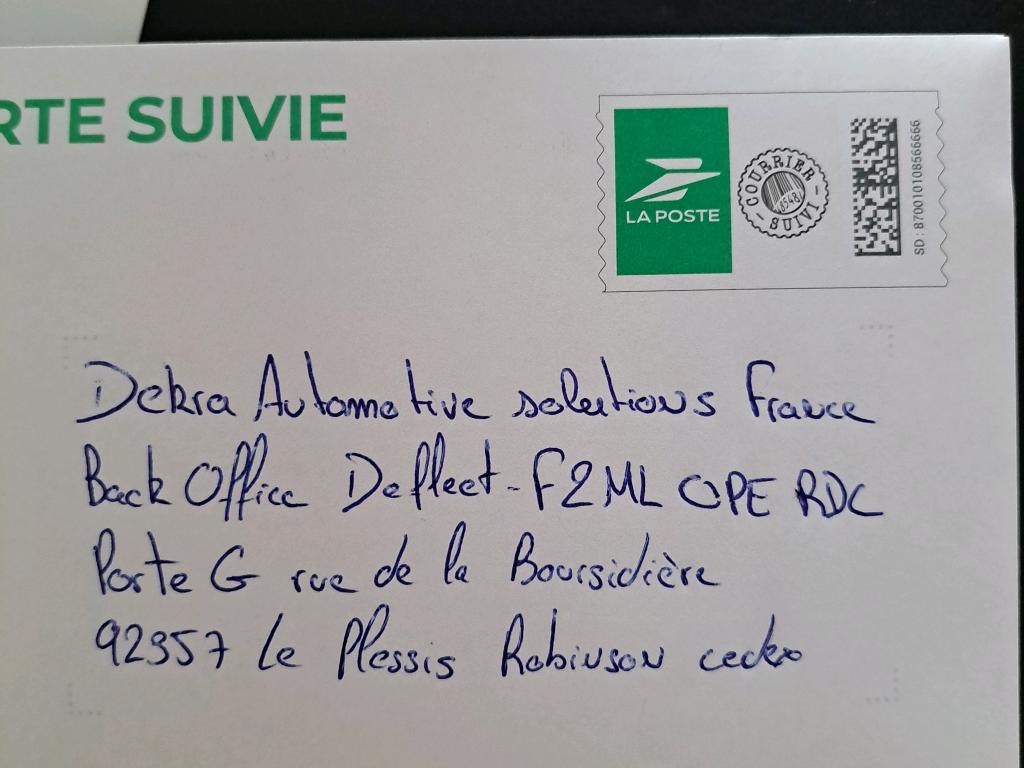 RTE SUIVIE
LA POSTE
COURRIER
SUIVI
SD : 87001010856666
Dekra Automotive solutions France
Back Office Defleet - F2ML OPE RDC
Porte G rue de la Boursidière
92357 Le Plessis Robinson cedex